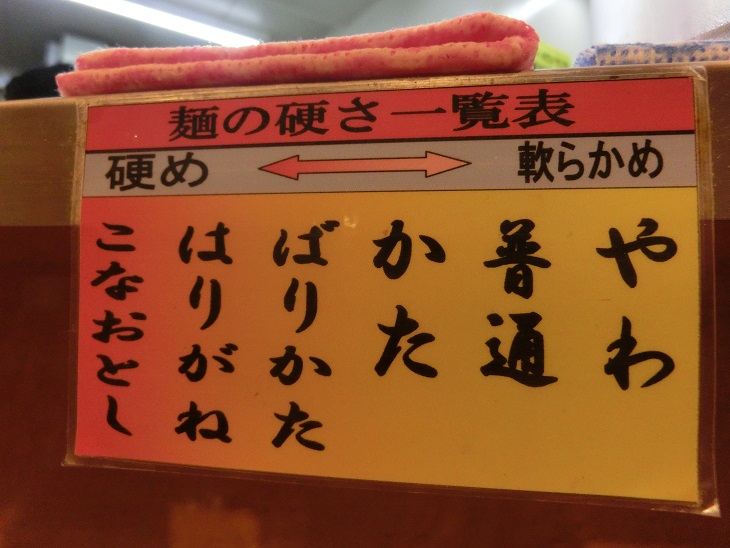 麺の硬さ一覧表
硬め 軟らかめ
やわ
普通
かた
ばりかた
はりがね
こなおとし